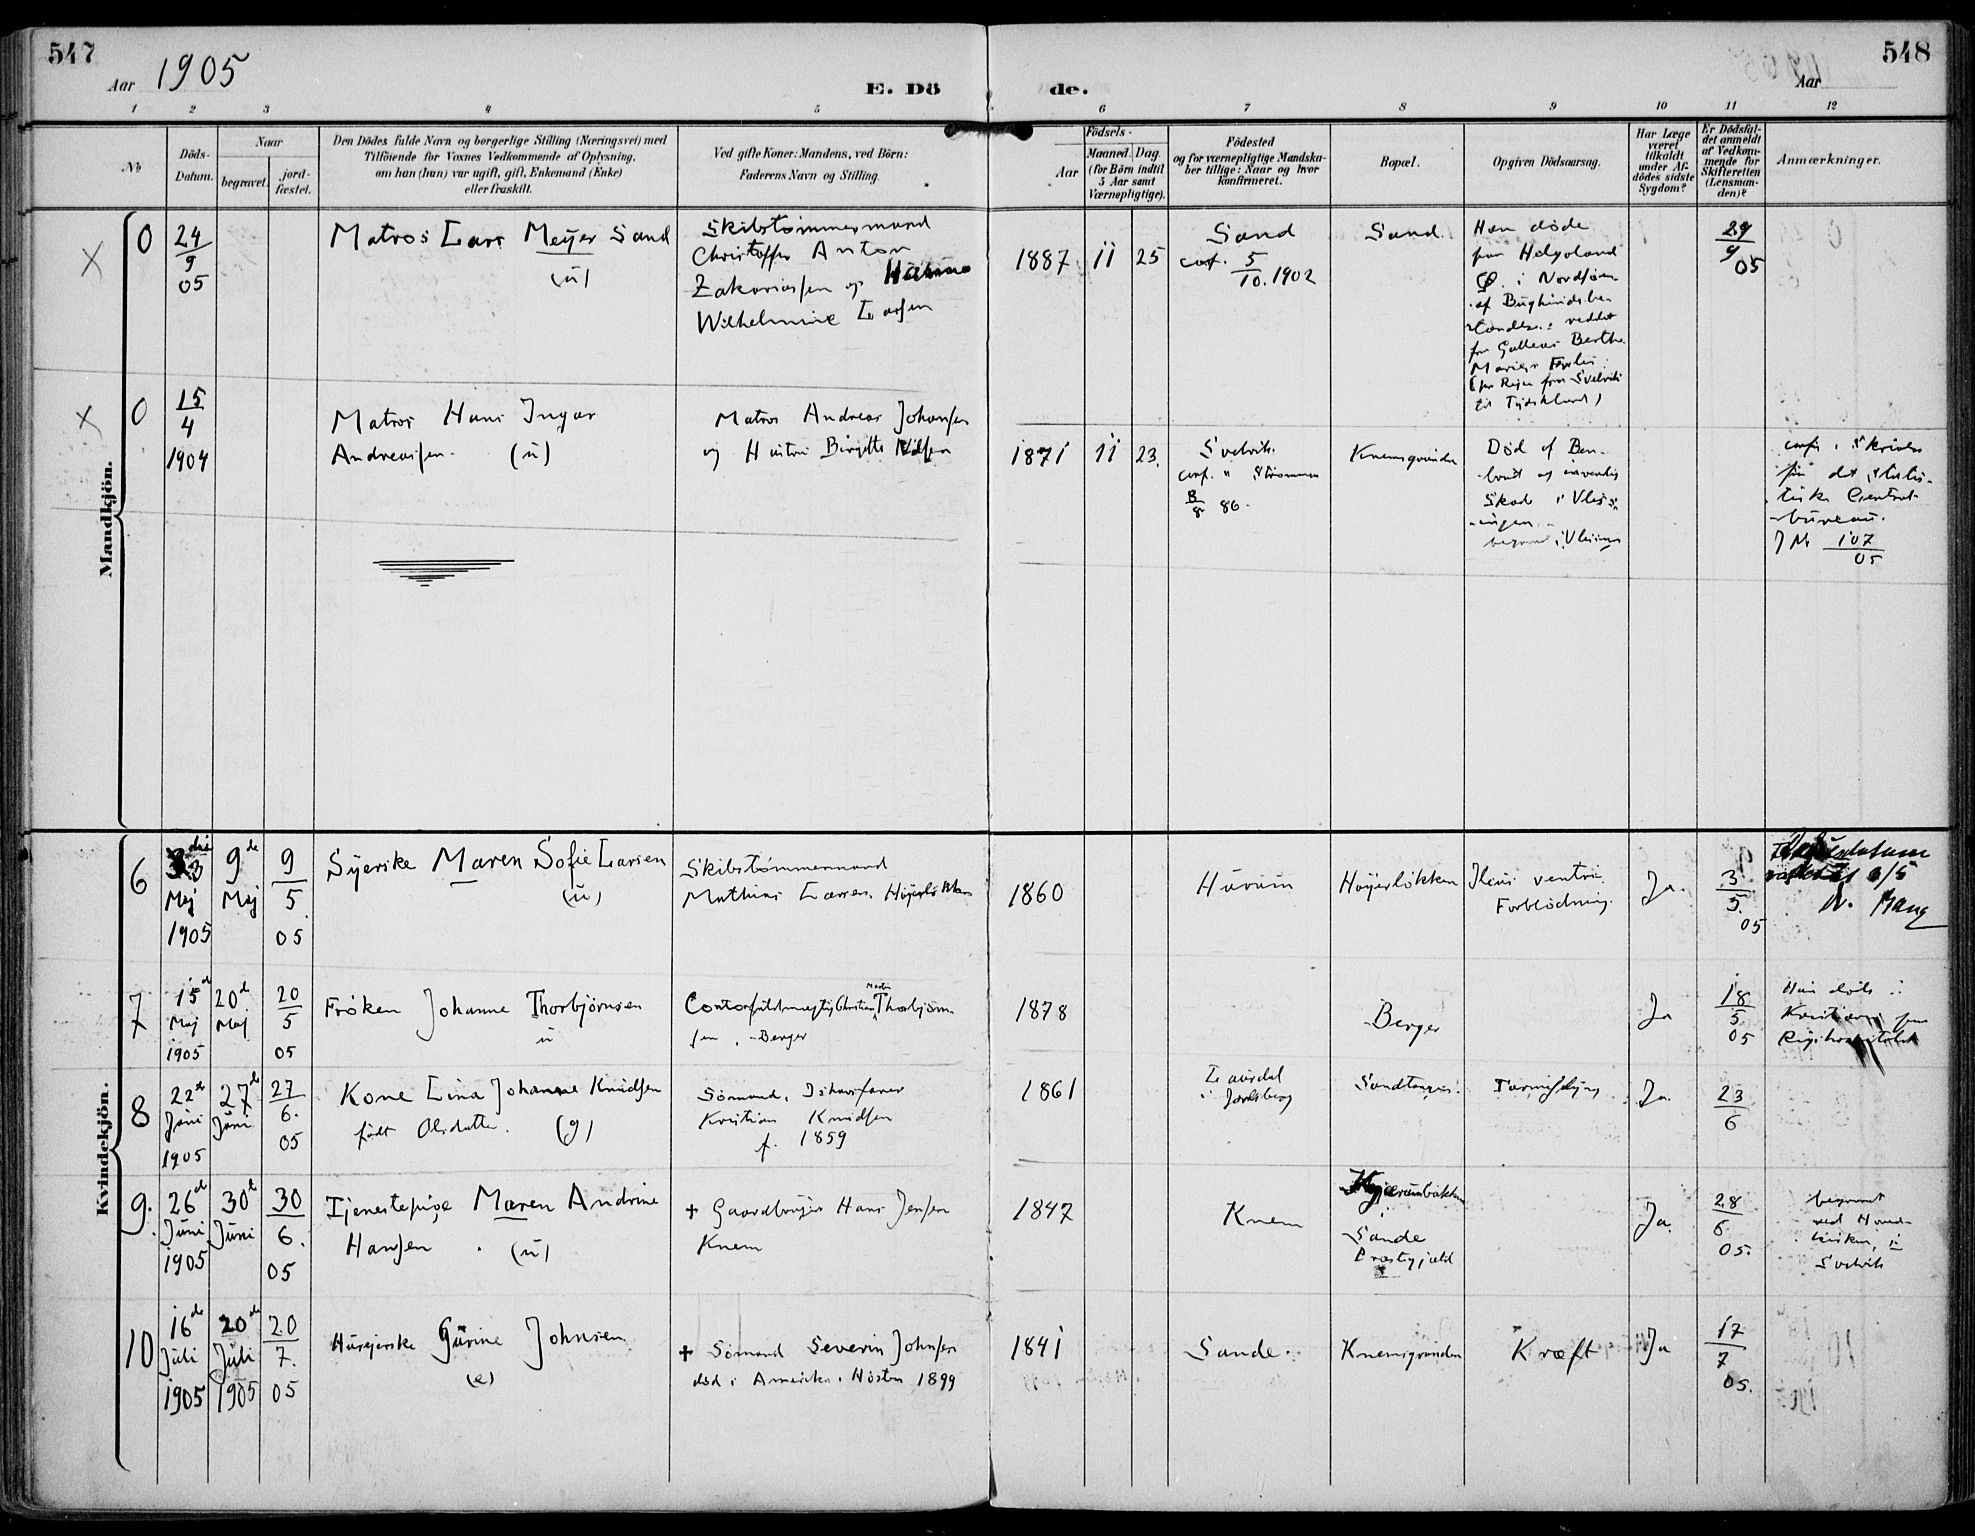 547
Aar 1905
E. Dö
de.
Aar
548
1 2 3 4 5 6 7 8 9 10 11 12
No
Döds-
Datum.
Naar
begravet.
jord-
fæstet.
Den Dödes fulde Navn og borgerlige Stilling (Næringsvei) med
Tilföiende for Voxnes Vedkommende af Oplysning,
om han (hun) var ugift, gift, Enkemand (Enke)
eller fraskilt.
Ved gifte Koner: Mandens, ved Börn:
Faderens Navn og Stilling.
Födsels-
Aar
Maaned. Dag
(for Börn indtil
5 Aar samt
Værnepligtige).
Födested
og for værnepligtige Mandska-
ber tillige: Naar og hvor
konfirmeret.
Bopæl.
Opgiven Dödsaarsag.
Har Læge
været
tilkaldt
under Af-
dödes sidste
Sygdom?
Er Dödsfal-
det anmeldt
af Vedkom-
mende for
Skifteretten
(Lensman-
den)?
Anmærkninger.
Mandkjön.
0
24
9
05
Matros Lars Meyer Sand
(u)
Skibstømmermand
Christoffer Anton
Zakariassen og Hanna
Wilhelmine Larsen
1887. 11 25
Sand
conf. 5
10. 1902
Sand.
Han døde
paa Helgoland
i Nordsøen
af
reddet
fra Galleas Berthe
Maries
(paa Rejse fra Svelvik
til Tydskland)
29
9
05
0
15
4
1904
Matros Hans Ingar
Andreassen. (u)
Matros Andreas Johansen
og Hustru Birgitte Nilsen
1871 11 23.
Svelvik.
conf. " Strømmen
8 86.
Knemsgrunden
Død af Ben-
brud og indvendig
Skad i Vliss-
ingen.
i Vlissingen
conf. Skrivelse
fra det statis-
tiske Central-
bureau.
J No 107
05
Kvindekjön.
6
Maj
1905
9de
Maj
9
5
05
Syerske Maren Sofie Larsen
(u)
Skibstømmermand
Mathias Larsen. Høyerløkken
1860
Hurum
Høyerløkken
Ileus ventri.
Forblødning.
Ja.
3
5.
05
7
15d
Maj
1905
20d
Maj
20
5
05
Frøken Johanne Thorbjørnsen
u
Contorfuldmægtig Christian Martin Thorbjørn-
sen, Berger
1878
Berger
Ja
18
5
05
Hun døde i
Kristiania paa
Rigshospitalet
8
22de
Juni
1905
27de
Juni
27
6.
05
Kone Lina Johanne Knudsen
født Olsdatter. (g)
Sømand,
Kristian Knudsen
f. 1859
1861
Laurdal
i Jarlsberg
Sandtangen.
Tarmslyng
Ja.
23
6
9.
26d
Juni
1905
30te
Juni
30
6.
05
Tjenestepige Maren Andrine
Hansen. (u)
+ Gaardbruger Hans Jensen
Knem
1847
Knem
Sande
Præstegjæld
Ja.
28
6
05.
begravet
ved Hoved-
kirken, i
Svelvik
10
16de
Juli
1905
20de
Juli
1905
20
7.
05
Husejerske Gurine Johnsen
(e)
+ Sømand Severin Johnsen
død i Amerika, Høsten 1899
1841
Sande.
Knemsgrunden
Kræft
Ja
17
7
05.